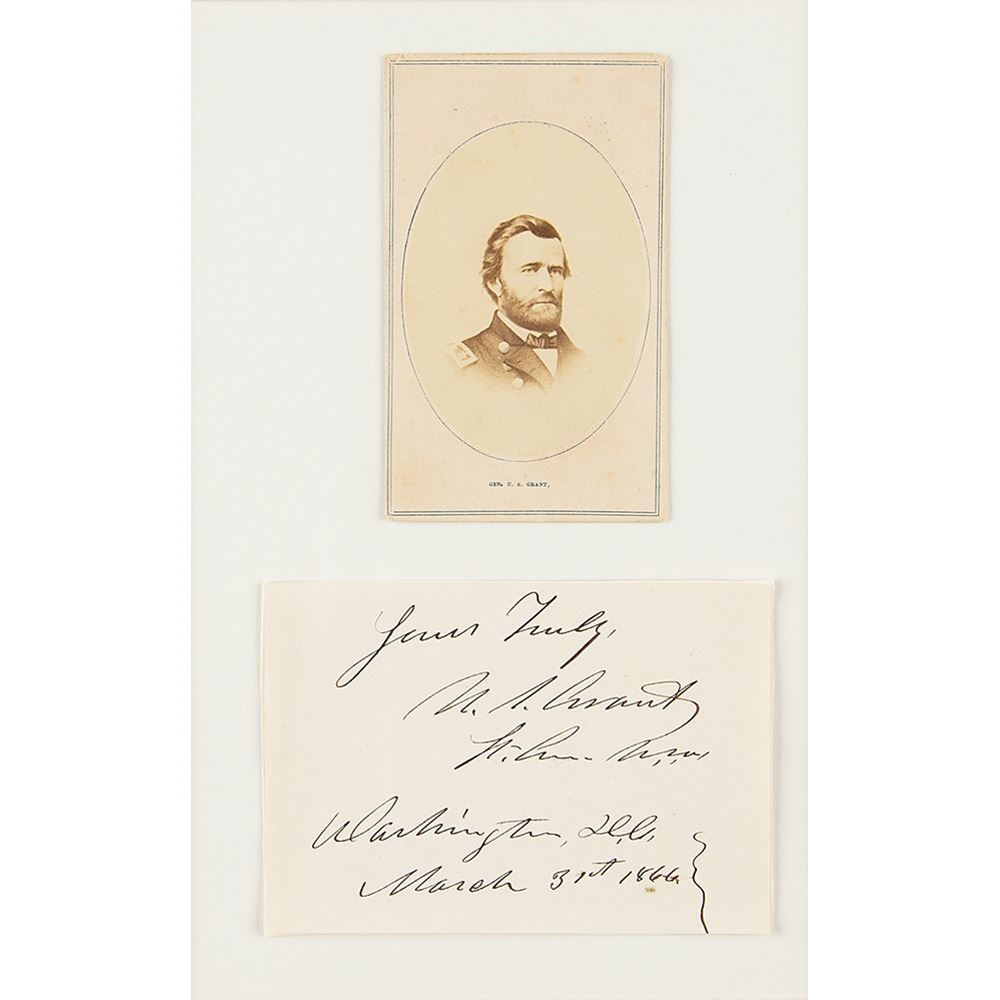 GEN. U. S. GRANT,
Yours Truly,
U. S. Grant
Lt. Gen. U.S.A.
Washington, D.C.
March 31st 1866